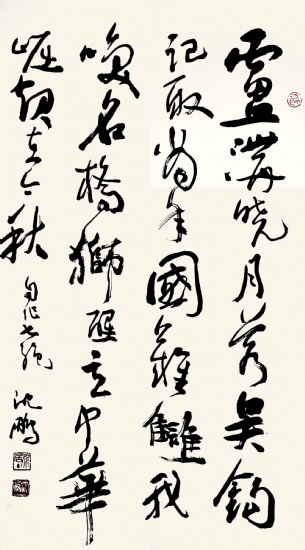 盧溝曉月若吳鉤
記取當年國難讎我
喚名橋獅醒立中華
崛起在今秋 自作七絕 沈鵬